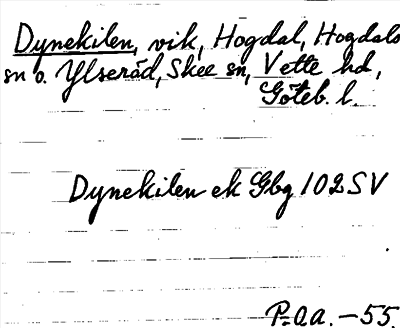 Dynekilen, vik, Hogdal, Hogdals
sn o. Ylseröd, Skee sn, Vette hd,
Göteb. l.
Dynekilen ek Gbg 102 SV
P.-O.a. -55.